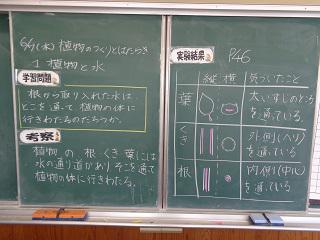 6/9(木) 植物のつくりとはたらき
1 植物と水
学習問題
根から取り入れた水は、
どこを通って植物の体に
行きわたるのだろうか。
考察
植物の、根、くき、葉には
水の通り道があり、そこを通って
植物の体に行きわたる。
実験結果 P46
縦 横 気づいたこと
葉
太いすじのところ
を通っている
くき
外側(ヘリ)
を通っている
根
内側(中心)
を通っている